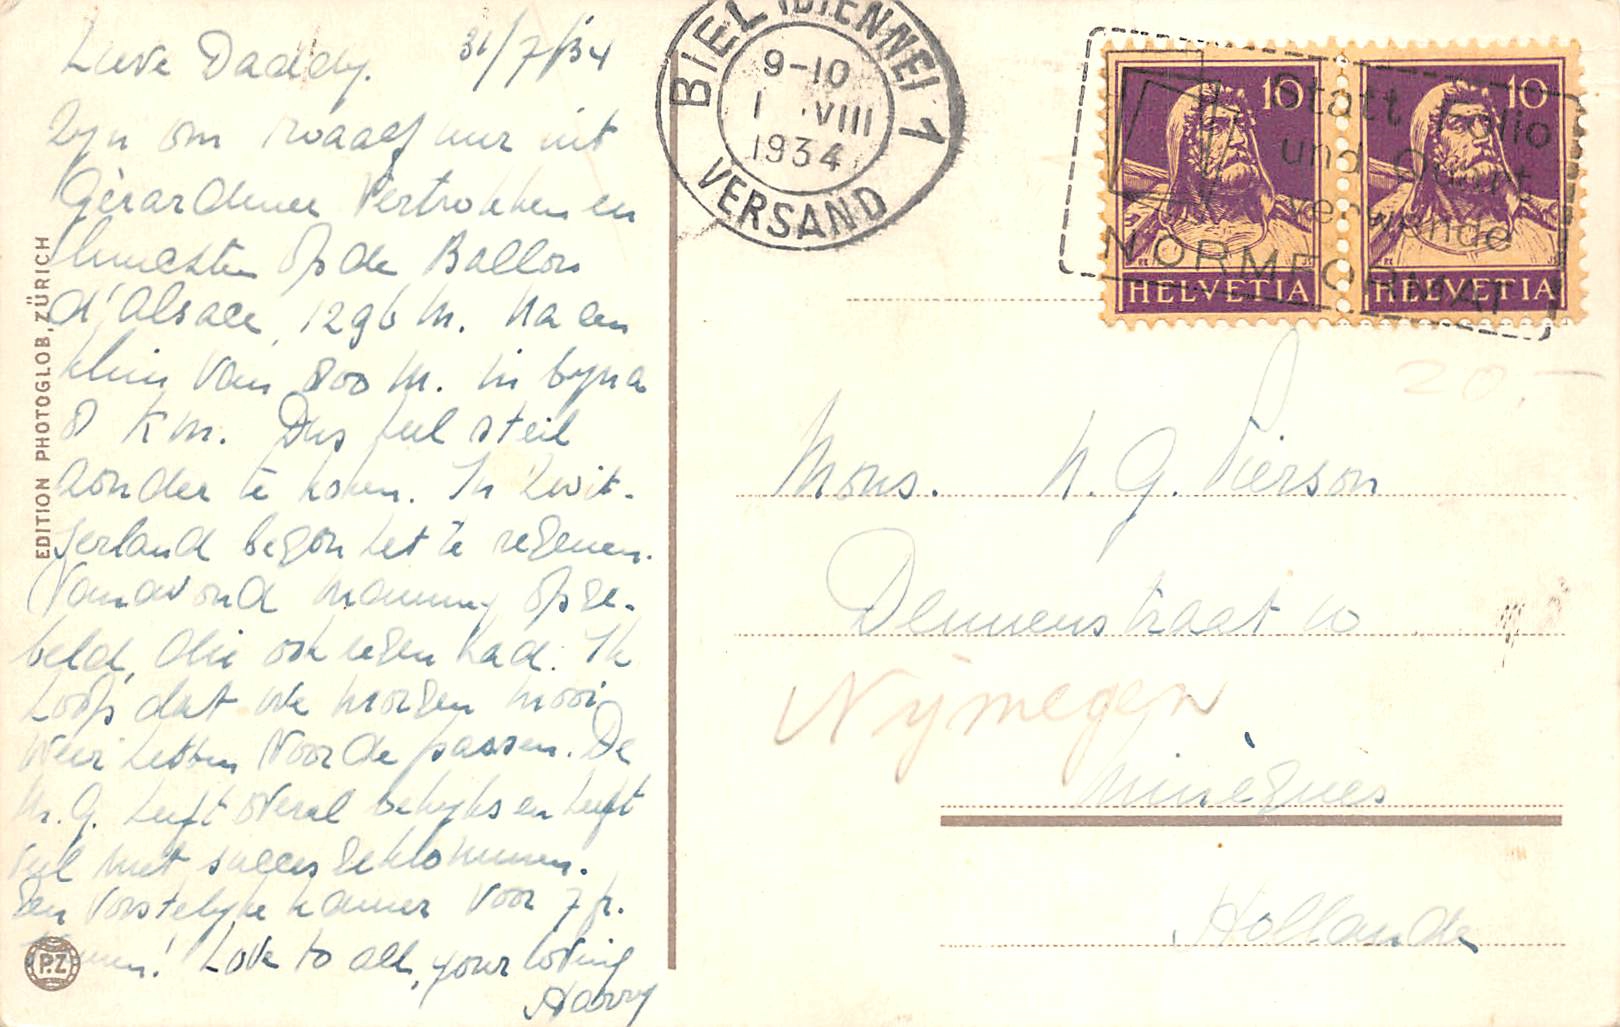 Lieve Daddy. 31/7/'34
Zijn om twaalf uur uit
Gérardmer vertrokken en
lunchten op de Ballon
d'Alsace, 1296 M. Na een
klim van 800 M. in byna
8 KM. Dus heel steil
zonder te koken. In Zwit-
serland begon het te regenen.
Vanavond mammy opge-
beld, die ook regen had. Ik
hoop dat we morgen mooi
weer hebben voor de passen. De
M.G. heeft overal bekyks en heeft
veel met succes geklommen.
Een vorstelyke kamer voor 7 fr.
Love to all, your loving
Harry
EDITION PHOTOGLOB, ZÜRICH
P.Z
BIEL (BIENNE) 1
9-10
1 .VIII
1934
VERSAND
10 10
HELVETIA HELVETIA
Statt Folio
und Quart
verwende
NORMFORMAT
20,-
Mons. N. G. Pierson
Dennenstraat 10
Nijmegen
Nimègues
Hollande